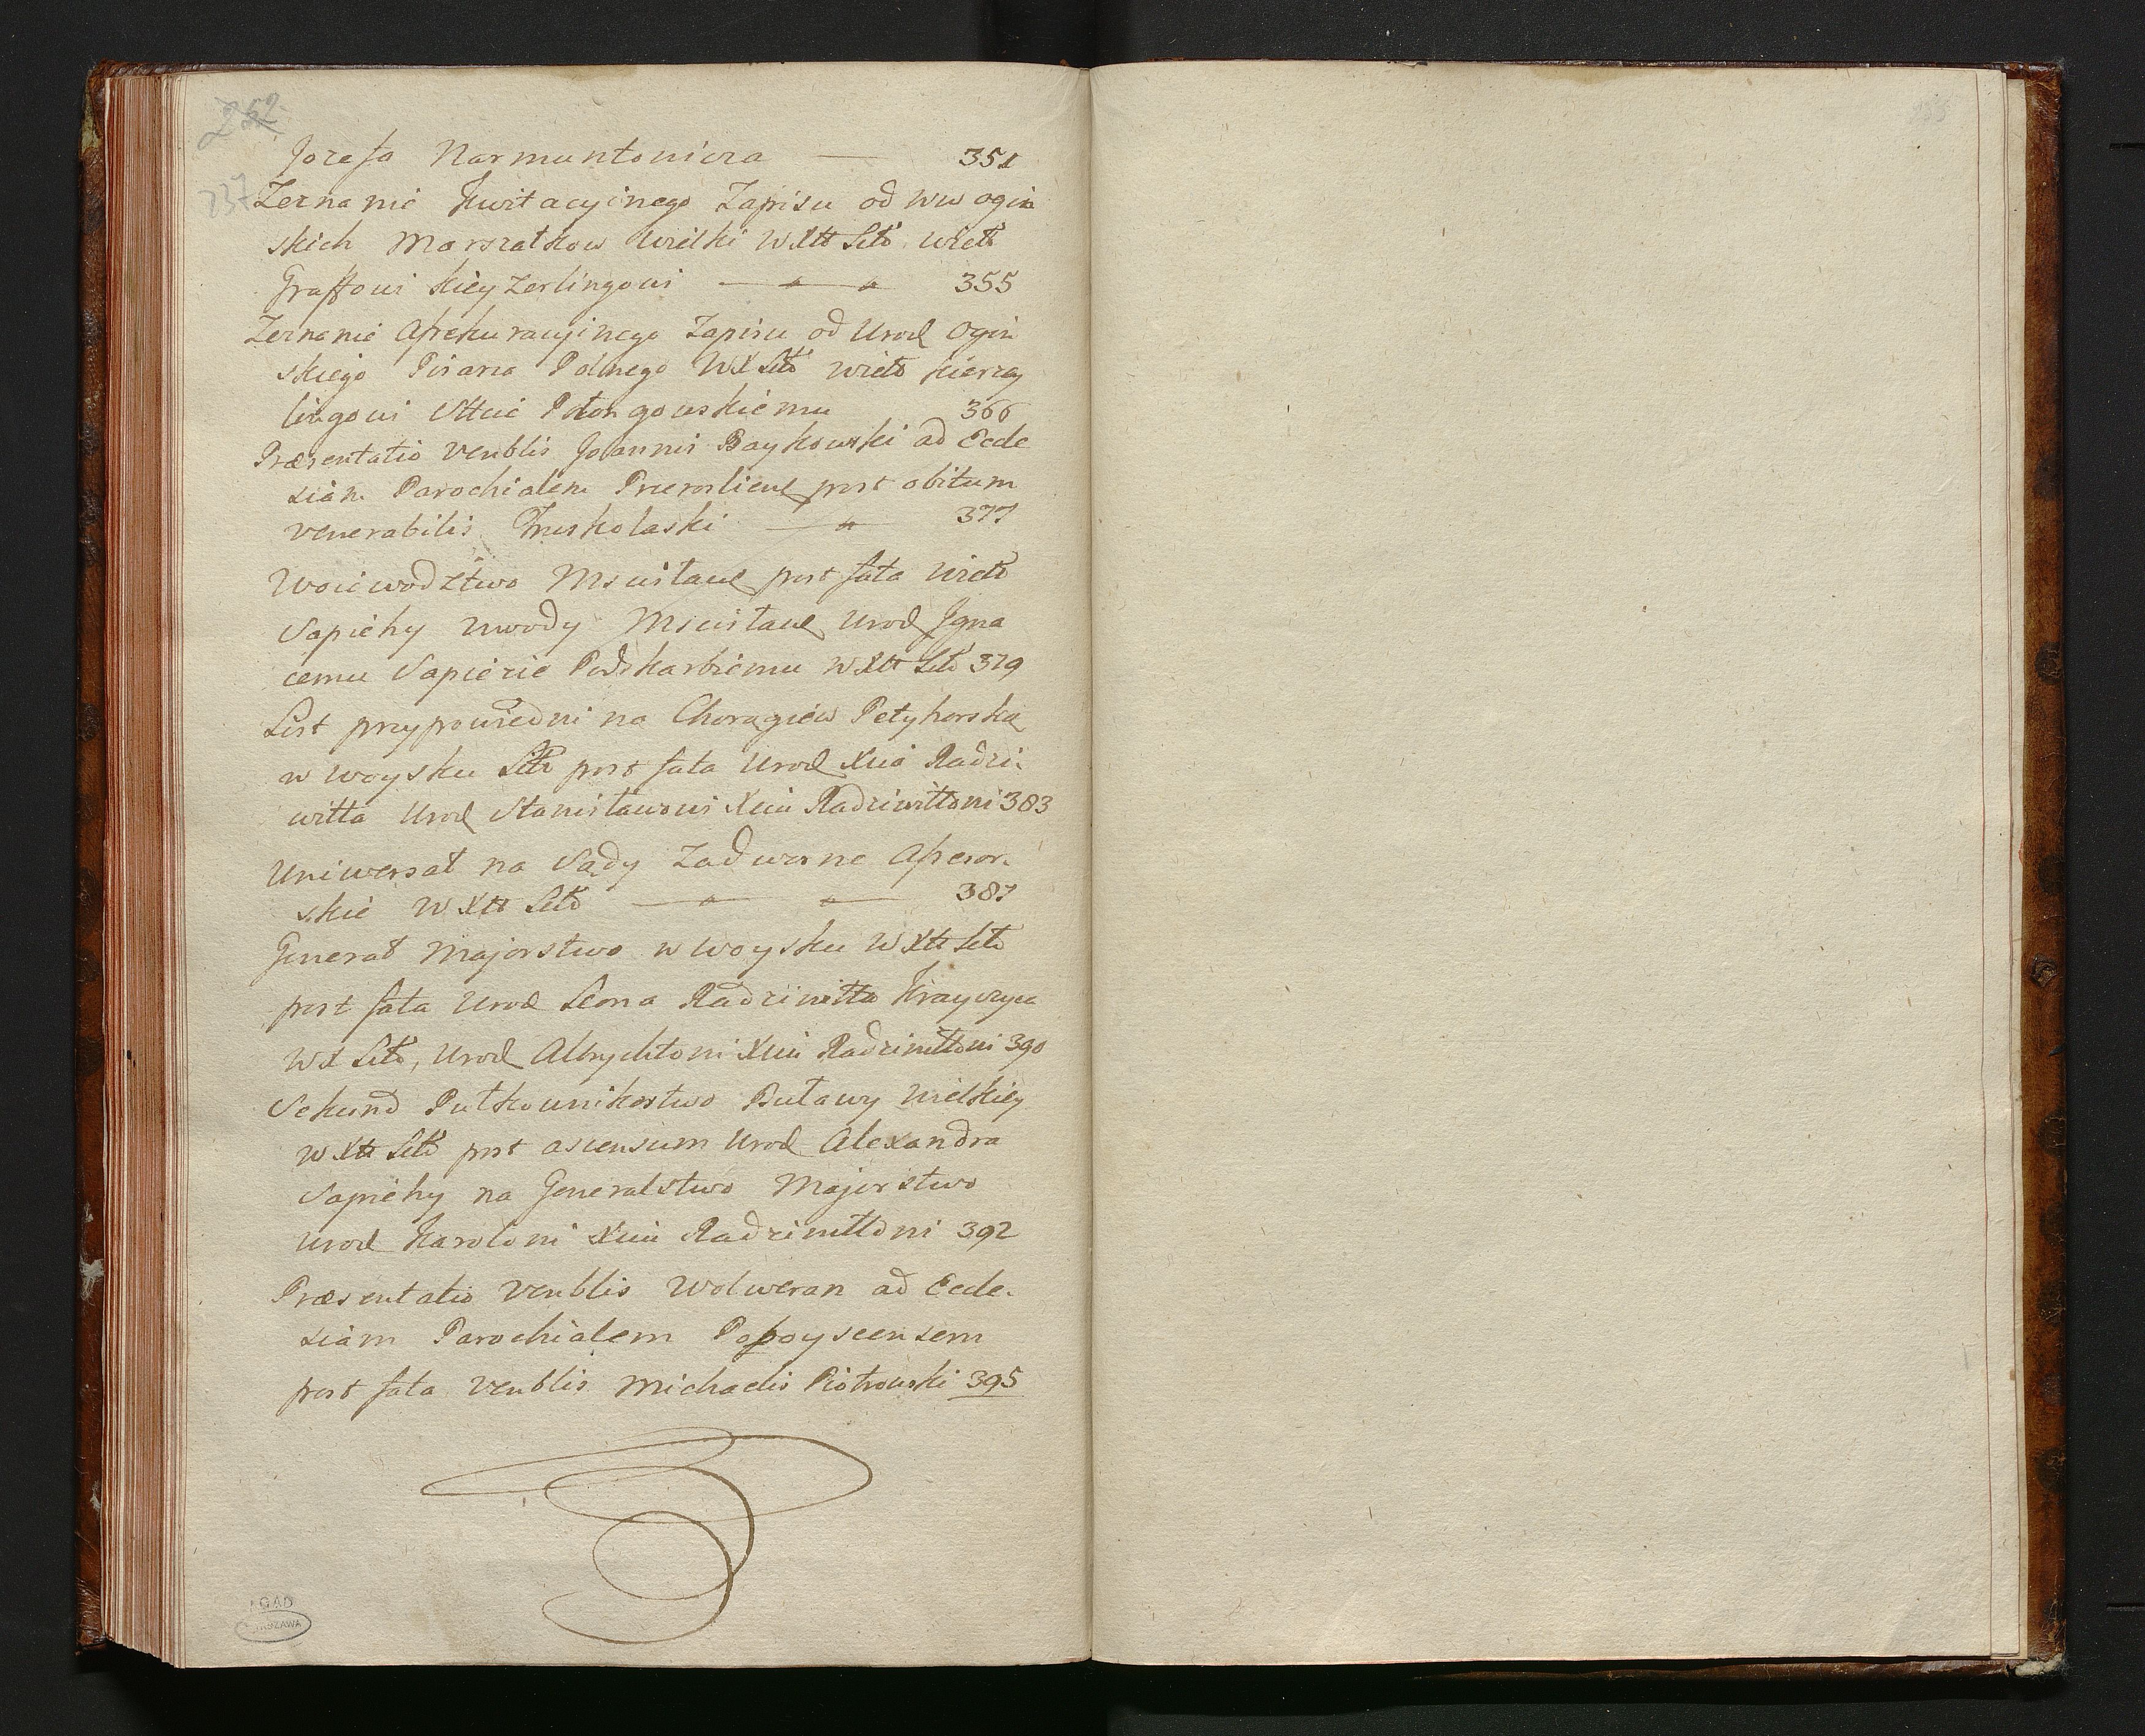 252
237
Jozefa Narmuntowicza — 351
Zeznanie Kwitacyinego Zapisu od WW Ogin
skich Marszałkow Wielki WXtt Litō Wielō
Graffowi Kieyzerlingowi — 355
Zeznanie Assekuracyinego Zapisu od Urod Ogin
skiego Pisarza Polnego WX Litō Wielō Kierzey
lingowi Sttcie Połongowskiemu 366
Præsentatio Venblis Joannis Baykowski ad Eccle
siam Parochialem Przerosliens post obitum
venerabilis Truskolaski — 377
Woiewodztwo Mscisławs post fata Wielō
Sapiehy Wwody Mscisławs Urod Igna
cemu Sapiezie Podskarbiemu WXtt Litō 379
List przypowiedni na Chorągiew Petyhorską
w Woysku Litō post fata Urod Xcia Radzi-
wiłła Urod Stanisławowi Xciu Radziwiłłowi 383
Uniwersał na Sądy Zadworne Assesor-
skie WXtt Litō — 387
Generał Majorstwo w Woysku WXtt Litō
post fata Urod Leona Radziwiłła Krayczyca
WX Litō, Urod Albrychtowi Xciu Radziwiłłowi 390
Sekund Pułkownikostwo Buławy Wielkiey
WXtt Litō post ascensum Urod Alexandra
Sapiehy na Generalstwo Majorstwo
Urod Karolowi Xciu Radziwiłłowi 392
Præsentatio Venblis Wolweran ad Eccle-
siam Parochialem Popoyscensem
post fata Venblis Michaelis Piotrowski 395
AGAD
WARSZAWA